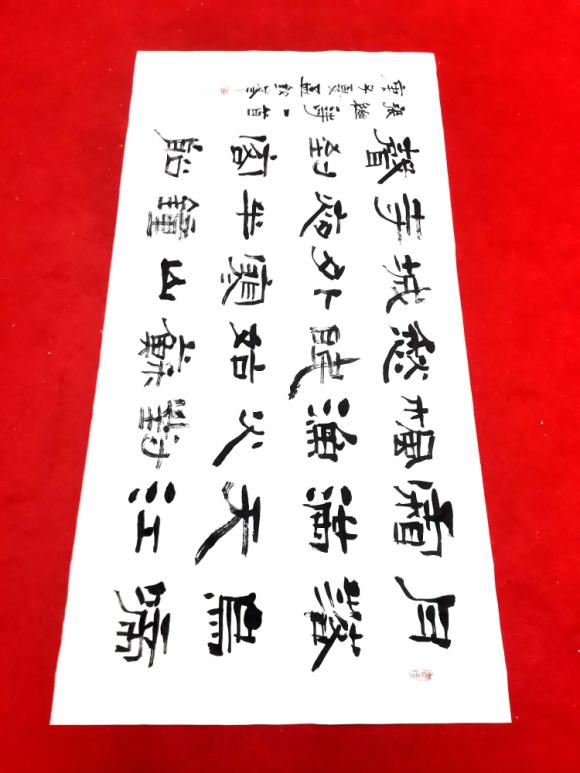 月落烏啼
霜滿天江
楓漁火對
愁眠姑蘇
城外寒山
寺夜半鐘
聲到客船
張繼詩一首
庚子夏孟